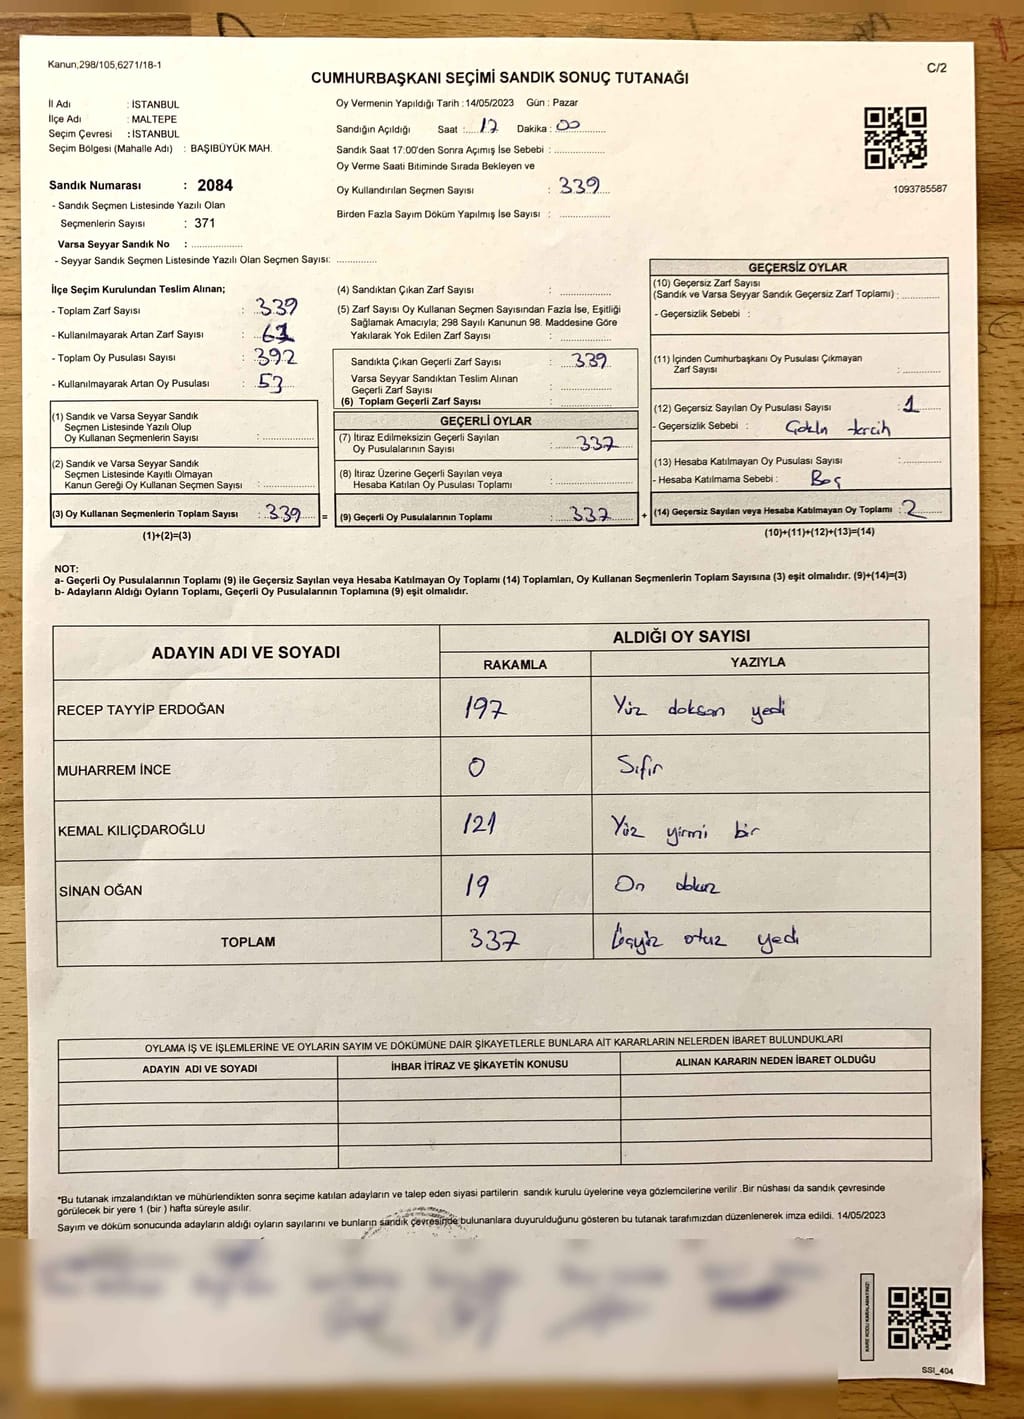 Kanun,298/105,6271/18-1
C/2
CUMHURBAŞKANI SEÇİMİ SANDIK SONUÇ TUTANAĞI
İl Adı : İSTANBUL
İlçe Adı : MALTEPE
Seçim Çevresi : İSTANBUL
Seçim Bölgesi (Mahalle Adı) : BAŞIBÜYÜK MAH.
Sandık Numarası : 2084
- Sandık Seçmen Listesinde Yazılı Olan
Seçmenlerin Sayısı : 371
Varsa Seyyar Sandık No : ................
- Seyyar Sandık Seçmen Listesinde Yazılı Olan Seçmen Sayısı: ............
Oy Vermenin Yapıldığı Tarih :14/05/2023 Gün : Pazar
Sandığın Açıldığı Saat : 17 Dakika : 00
Sandık Saat 17:00'den Sonra Açımış İse Sebebi : ................
Oy Verme Saati Bitiminde Sırada Bekleyen ve
Oy Kullandırılan Seçmen Sayısı : 339
Birden Fazla Sayım Döküm Yapılmış İse Sayısı : ................
1093785587
İlçe Seçim Kurulundan Teslim Alınan;
- Toplam Zarf Sayısı : 339
- Kullanılmayarak Artan Zarf Sayısı :
- Toplam Oy Pusulası Sayısı : 392
- Kullanılmayarak Artan Oy Pusulası : 53
(1) Sandık ve Varsa Seyyar Sandık
Seçmen Listesinde Yazılı Olup
Oy Kullanan Seçmenlerin Sayısı : ................
(2) Sandık ve Varsa Seyyar Sandık
Seçmen Listesinde Kayıtlı Olmayan
Kanun Gereği Oy Kullanan Seçmen Sayısı : ................
(3) Oy Kullanan Seçmenlerin Toplam Sayısı : 339 =
(1)+(2)=(3)
(4) Sandıktan Çıkan Zarf Sayısı : ................
(5) Zarf Sayısı Oy Kullanan Seçmen Sayısından Fazla İse, Eşitliği
Sağlamak Amacıyla; 298 Sayılı Kanunun 98. Maddesine Göre
Yakılarak Yok Edilen Zarf Sayısı : ................
Sandıkta Çıkan Geçerli Zarf Sayısı : 339
Varsa Seyyar Sandıktan Teslim Alınan
Geçerli Zarf Sayısı : ................
(6) Toplam Geçerli Zarf Sayısı : ................
GEÇERLİ OYLAR
(7) İtiraz Edilmeksizin Geçerli Sayılan
Oy Pusulalarının Sayısı : 337
(8) İtiraz Üzerine Geçerli Sayılan veya
Hesaba Katılan Oy Pusulası Toplamı : ................
(9) Geçerli Oy Pusulalarının Toplamı : 337 +
GEÇERSİZ OYLAR
(10) Geçersiz Zarf Sayısı
(Sandık ve Varsa Seyyar Sandık Geçersiz Zarf Toplamı) : ............
- Geçersizlik Sebebi :
(11) İçinden Cumhurbaşkanı Oy Pusulası Çıkmayan
Zarf Sayısı : ............
(12) Geçersiz Sayılan Oy Pusulası Sayısı : 1
- Geçersizlik Sebebi : tercih
(13) Hesaba Katılmayan Oy Pusulası Sayısı : ............
- Hesaba Katılmama Sebebi : Boş
(14) Geçersiz Sayılan veya Hesaba Katılmayan Oy Toplamı : 2
(10)+(11)+(12)+(13)=(14)
NOT:
a- Geçerli Oy Pusulalarının Toplamı (9) ile Geçersiz Sayılan veya Hesaba Katılmayan Oy Toplamı (14) Toplamları, Oy Kullanan Seçmenlerin Toplam Sayısına (3) eşit olmalıdır. (9)+(14)=(3)
b- Adayların Aldığı Oyların Toplamı, Geçerli Oy Pusulalarının Toplamına (9) eşit olmalıdır.
ADAYIN ADI VE SOYADI ALDIĞI OY SAYISI
RAKAMLA YAZIYLA
RECEP TAYYİP ERDOĞAN 197 Yüz doksan yedi
MUHARREM İNCE 0 Sıfır
KEMAL KILIÇDAROĞLU 121 Yüz yirmi bir
SİNAN OĞAN 19 On dokuz
TOPLAM 337 Üçyüz otuz yedi
OYLAMA İŞ VE İŞLEMLERİNE VE OYLARIN SAYIM VE DÖKÜMÜNE DAİR ŞİKAYETLERLE BUNLARA AİT KARARLARIN NELERDEN İBARET BULUNDUKLARI
ADAYIN ADI VE SOYADI İHBAR İTİRAZ VE ŞİKAYETİN KONUSU ALINAN KARARIN NEDEN İBARET OLDUĞU
*Bu tutanak imzalandıktan ve mühürlendikten sonra seçime katılan adayların ve talep eden siyasi partilerin sandık kurulu üyelerine veya gözlemcilerine verilir .Bir nüshası da sandık çevresinde
görülecek bir yere 1 (bir ) hafta süreyle asılır.
Sayım ve döküm sonucunda adayların aldığı oyların sayılarını ve bunların sandık çevresinde bulunanlara duyurulduğunu gösteren bu tutanak tarafımızdan düzenlenerek imza edildi. 14/05/2023
KARE KODU KARALAMAYINIZ!
SSI_404